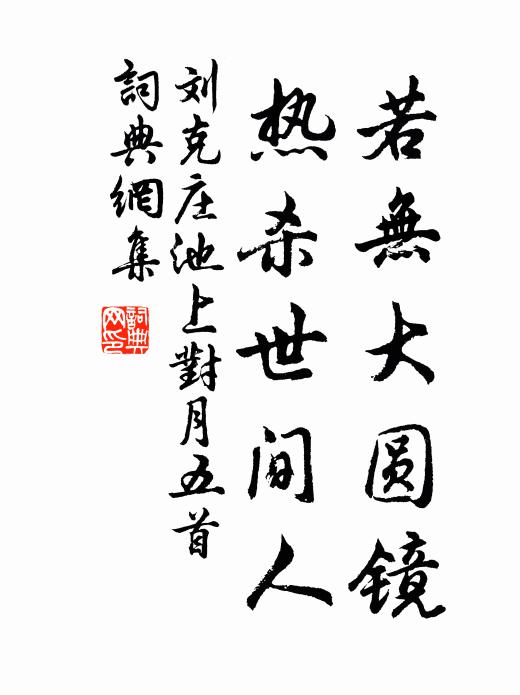 若無大圆镜
热杀世间人
刘克庄池上對月五首
詞典網集
詞典网印